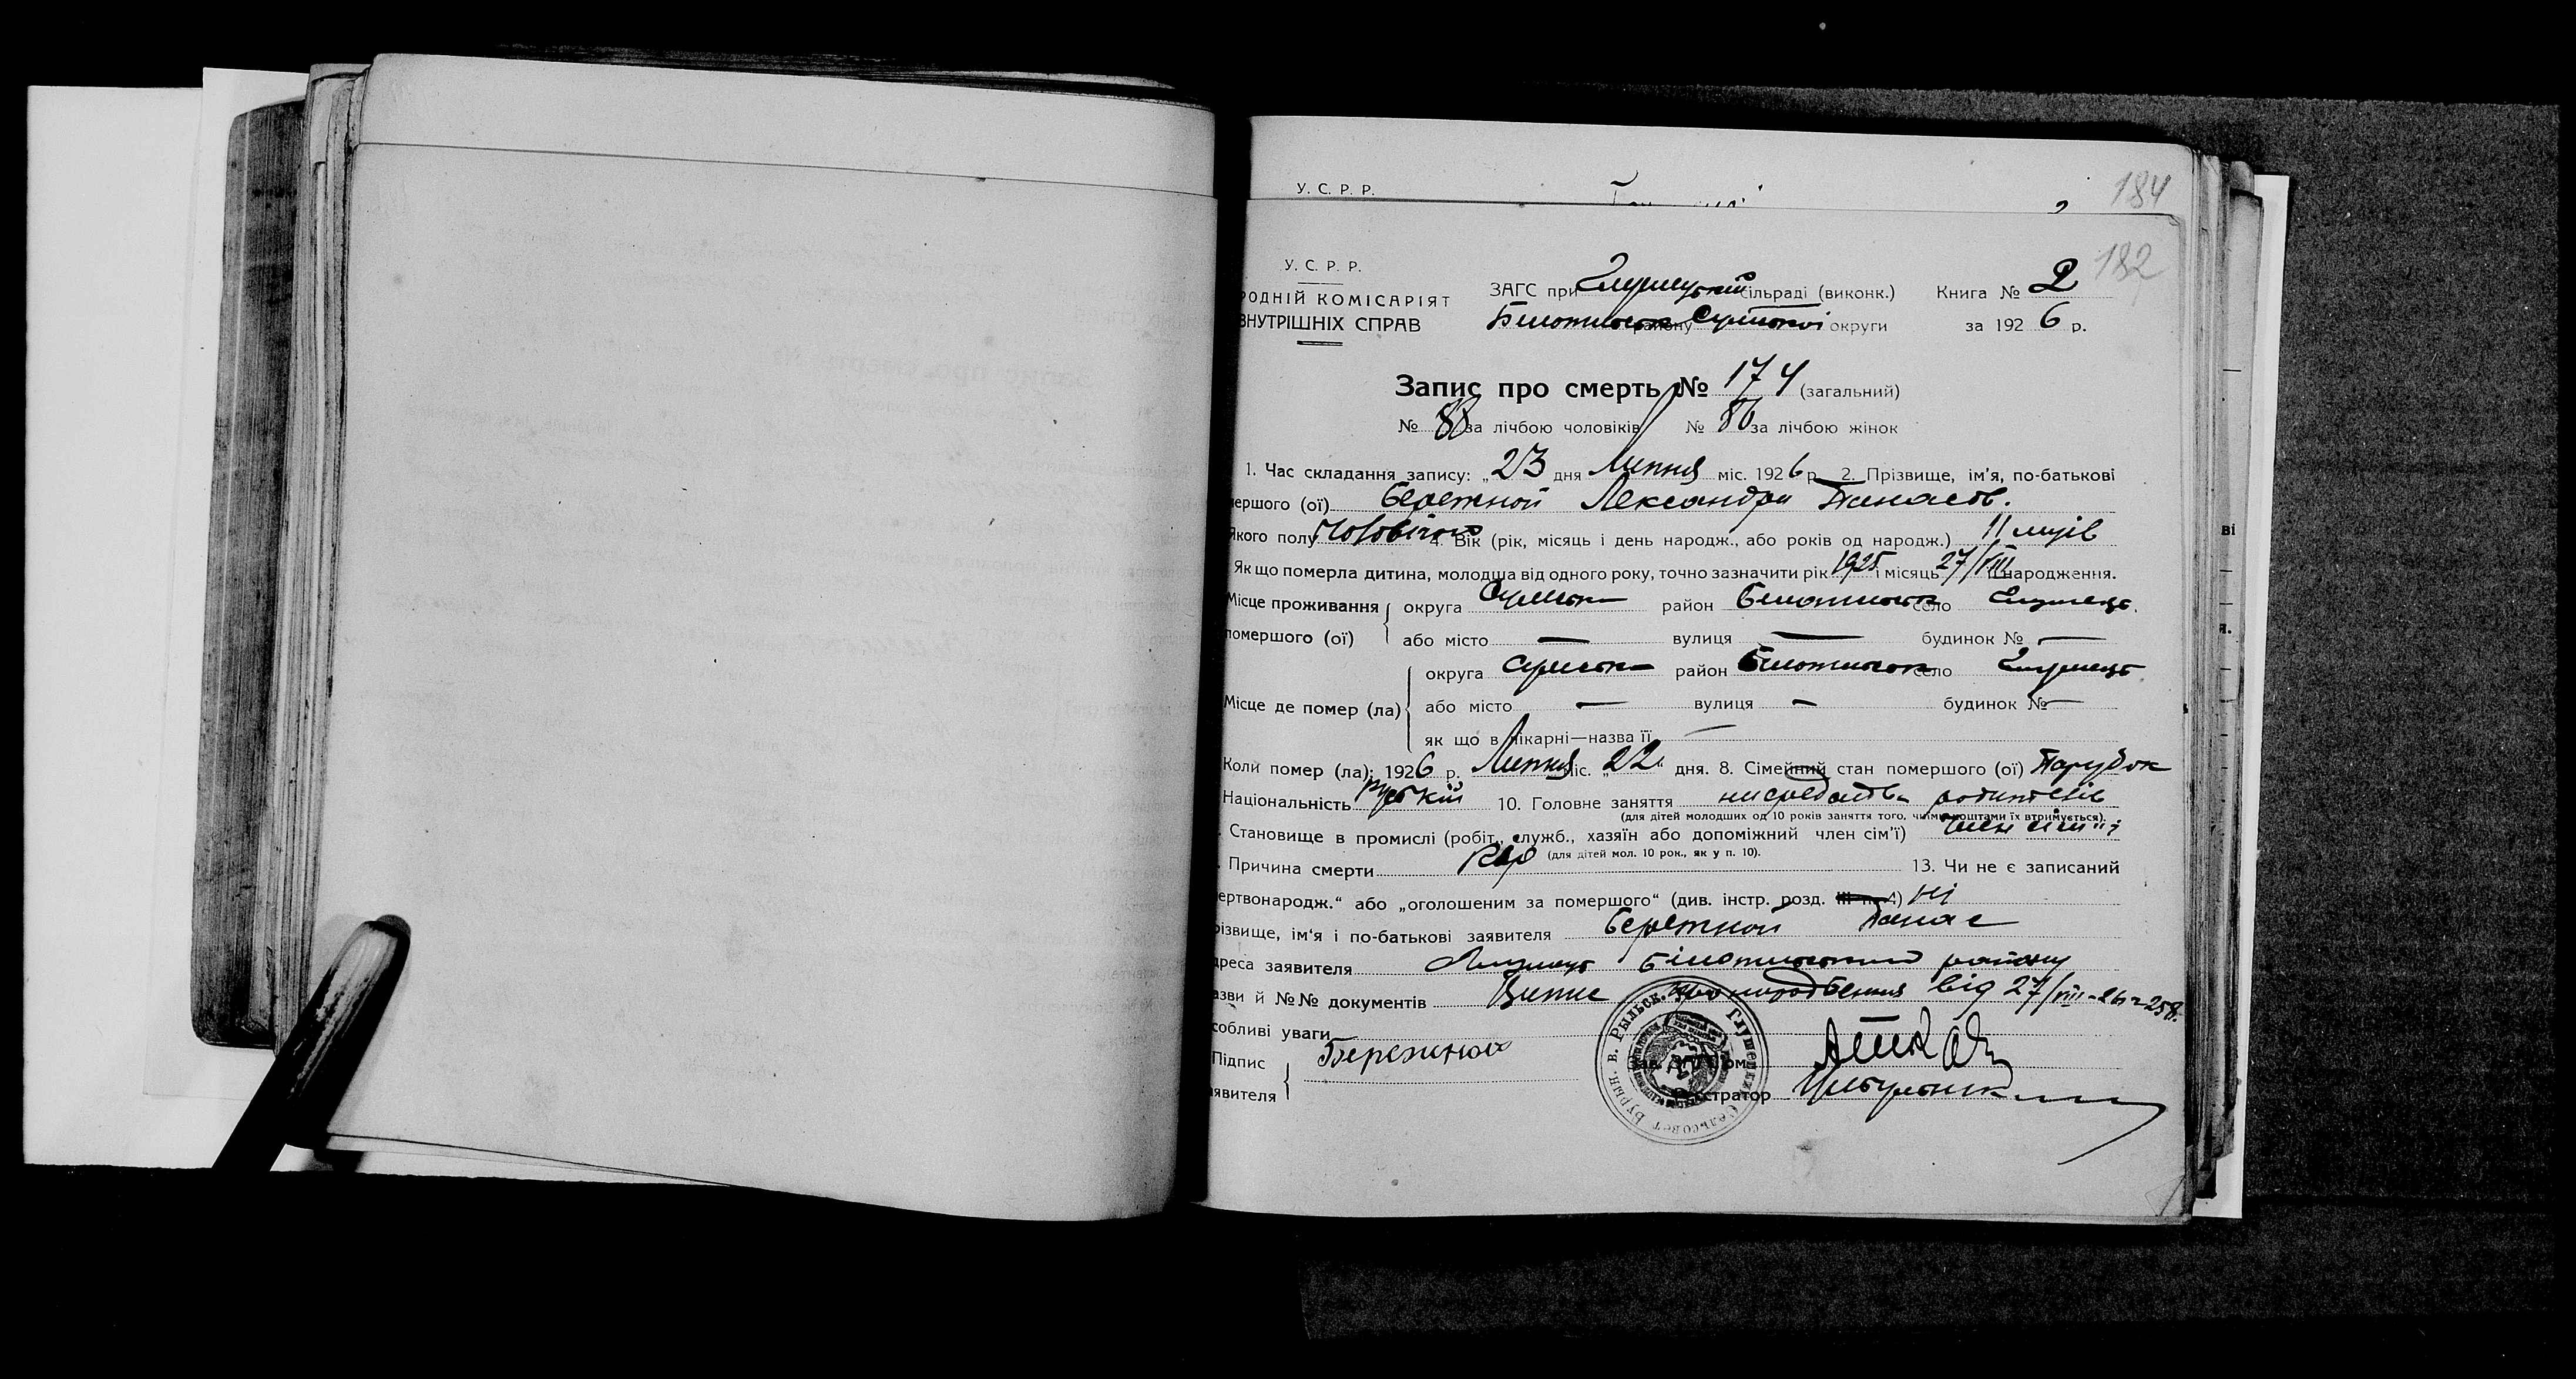 У. С. Р. Р.
184
182
У. С. Р. Р.
РОДНІЙ КОМІСАРІЯТ
ВНУТРІШНІХ СПРАВ
ЗАГС при Глушецькій сільраді (виконк.) Книга № 2
району Сумської округи за 1926 р.
Запис про смерть № 174 (загальний)
№ 88 за лічбою чоловіків № 86 за лічбою жінок
1. Час складання запису: „23 дня Липня міс. 1926 р. 2. Прізвище, ім'я, по-батькові
мершого (ої) Бережной Лександра Панасов.
Якого полу 4. Вік (рік, місяць і день народж., або років од народж.) 11 місів
Як що померла дитина, молодша від одного року, точно зазначити рік 1925 і місяць 27/VIII народження.
Місце проживання помершого (ої)
округа Сумськ район село Глушець.
або місто — вулиця — будинок № —
Місце де помер (ла)
округа Сумськ район село Глушець
або місто — вулиця — будинок № —
як що в лікарні—назва її —
Коли помер (ла): 1926 р. Липня міс. „22" дня. 8. Сімейний стан помершого (ої) Парубок
Національність руській 10. Головне заняття
(для дітей молодших од 10 років заняття того, чиїми коштами їх втримується).
Становище в промислі (робіт., служб., хазяїн або допоміжний член сім'ї) член сім'ї
(для дітей мол. 10 рок., як у п. 10).
Причина смерти Кор 13. Чи не є записаний
ертвонародж." або „оголошеним за помершого" (див. інстр. розд. 4) Ні
різвище, ім'я і по-батькові заявителя Бережной Панас
дреса заявителя району
азви й №№ документів Випис про народження від 27/VIII-26 № 258.
собливі уваги
Підпис
явителя
Бережной
Реєстратор
Глушецкий Сельсовет Бурын. в. Рыльск.
ві
я.